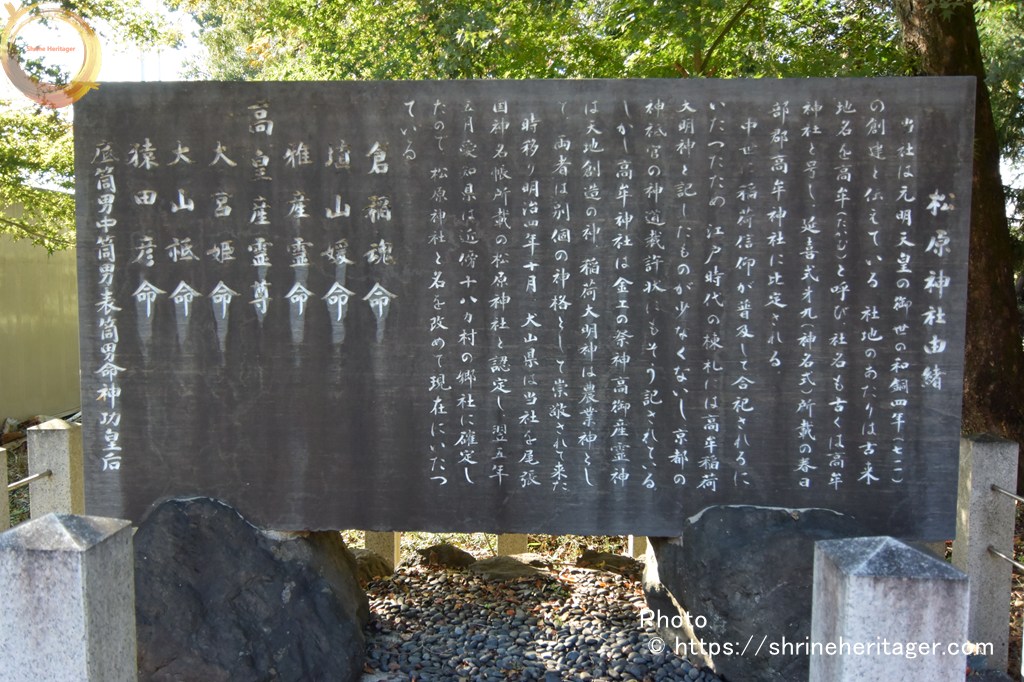 松原神社由緒
当社は元明天皇の御世の和銅四年(七一一)
の創建と伝えている 社地のあたりは古来
地名を高牟(たかむ)と呼び 社名も古くは高牟
神社と号し 延喜式才九(神名式)所載の春日
部郡高牟神社に比定される
中世 稲荷信仰が普及して合祀されるに
いたつたため 江戸時代の棟札には高牟稲荷
大明神と記したものが少なくないし 京都の
神祇官の神道裁許状にもそう記されている
しかし高牟神社は金工の祭神高御産霊神
は天地創造の神 稲荷大明神は農業神とし
て 両者は別個の神格として崇敬されて来た
時移り明治四年十月 犬山県は当社を尾張
国神名帳所載の松原神社と認定し 翌五年
五月愛知県は近傍十八カ村の郷社に確定し
たので 松原神社と名を改めて現在にいたつ
ている
倉稲魂命
埴山媛命
雅産霊命
高皇産霊尊
大宮姫命
大山祗命
猿田彦命
底筒男中筒男表筒男命神功皇后
Shrine Heritager
Photo
© https://shrineheritager.com